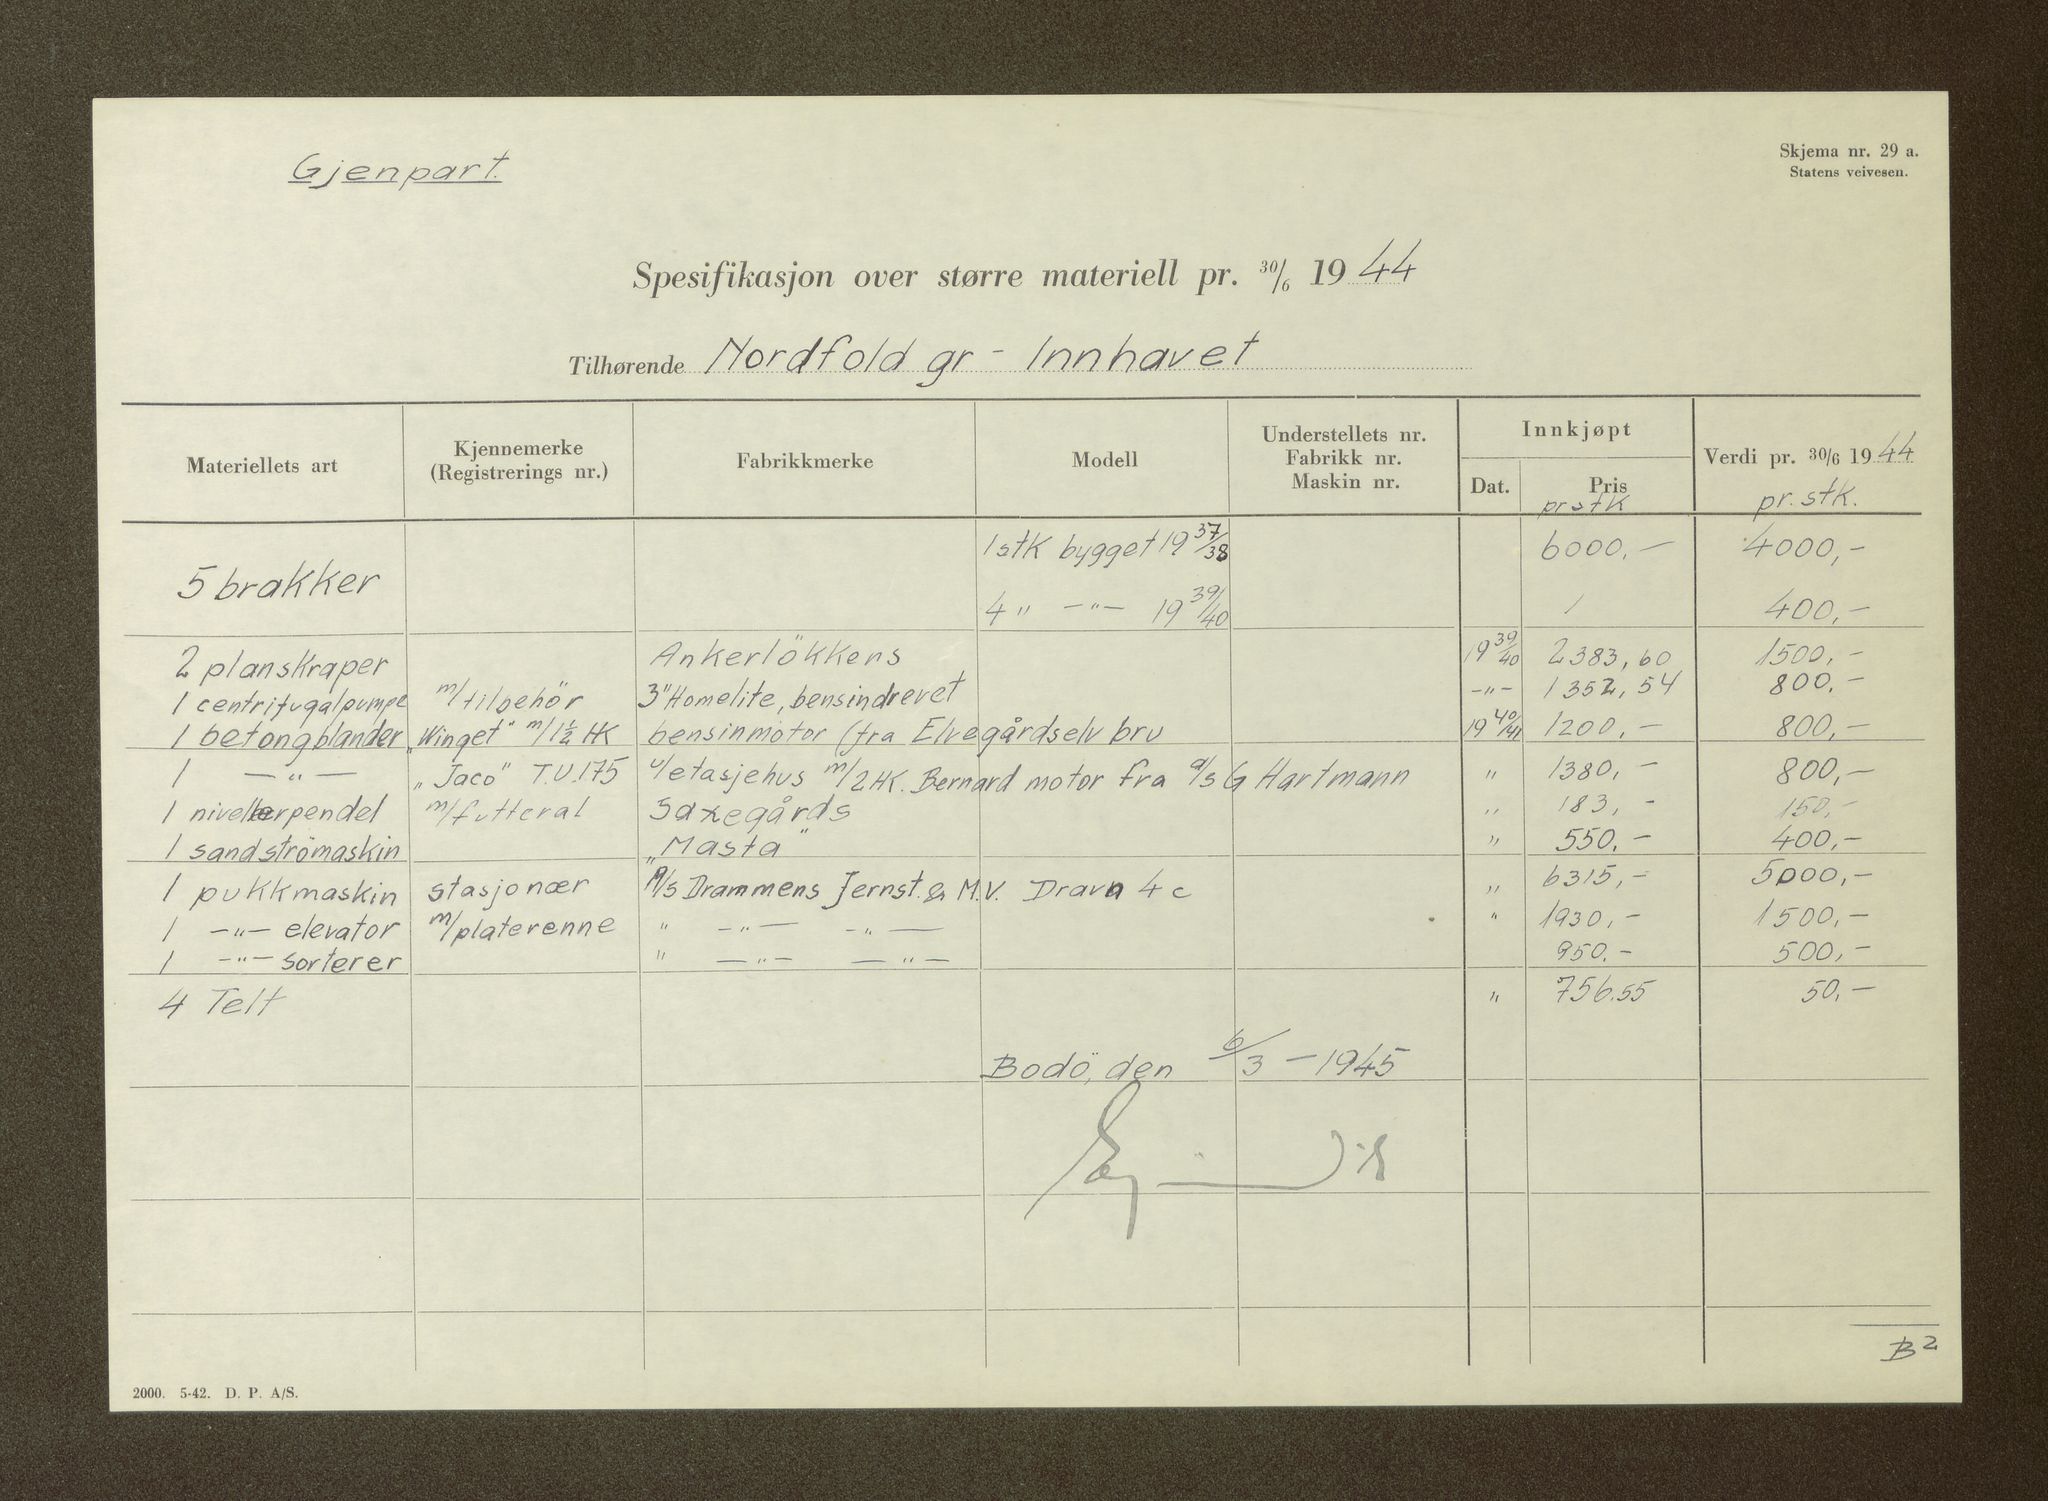 Gjenpart.
Skjema nr. 29 a.
Statens veivesen.
Spesifikasjon over større materiell pr. 30/6 1944
Tilhørende Nordfold gr - Innhavet
Materiellets art Kjennemerke (Registrerings nr.) Fabrikkmerke Modell Understellets nr. Fabrikk nr. Maskin nr. Innkjøpt Dat. Pris pr stk Verdi pr. 30/6 1944 pr. stk.
1 stk bygget 1937/38 6000,- 4000,-
5 brakker
4 " -"- 1939/40 / 400,-
2 planskraper Ankerlökkens 1939/40 2383,60 1500,-
1 centrifugalpumpe m/tilbehör 3" Homelite, bensindrevet -"- 1352,54 800,-
1 betongblander "Winget" m/1½ HK bensinmotor (fra Elvegårdselv bru 1940/41 1200,- 800,-
1 -"- "Jaco" T.U.175 u/etasjehus m/2 HK. Bernard motor fra a/s G Hartmann " 1380,- 800,-
1 nivellerpendel m/futteral Saxegårds " 183,- 150,-
1 sandströmaskin "Masta" " 550,- 400,-
1 pukkmaskin stasjonær A/S Drammens Jernst. & M.V. Dravn 4 c " 6315,- 5000,-
1 -"- elevator m/platerenne " -"- -"- " 1930,- 1500,-
1 -"- sorterer " -"- -"- 950.- 500,-
4 Telt " 756.55 50,-
Bodö, den 6/3 - 1945
B2
2000. 5-42. D. P. A/S.